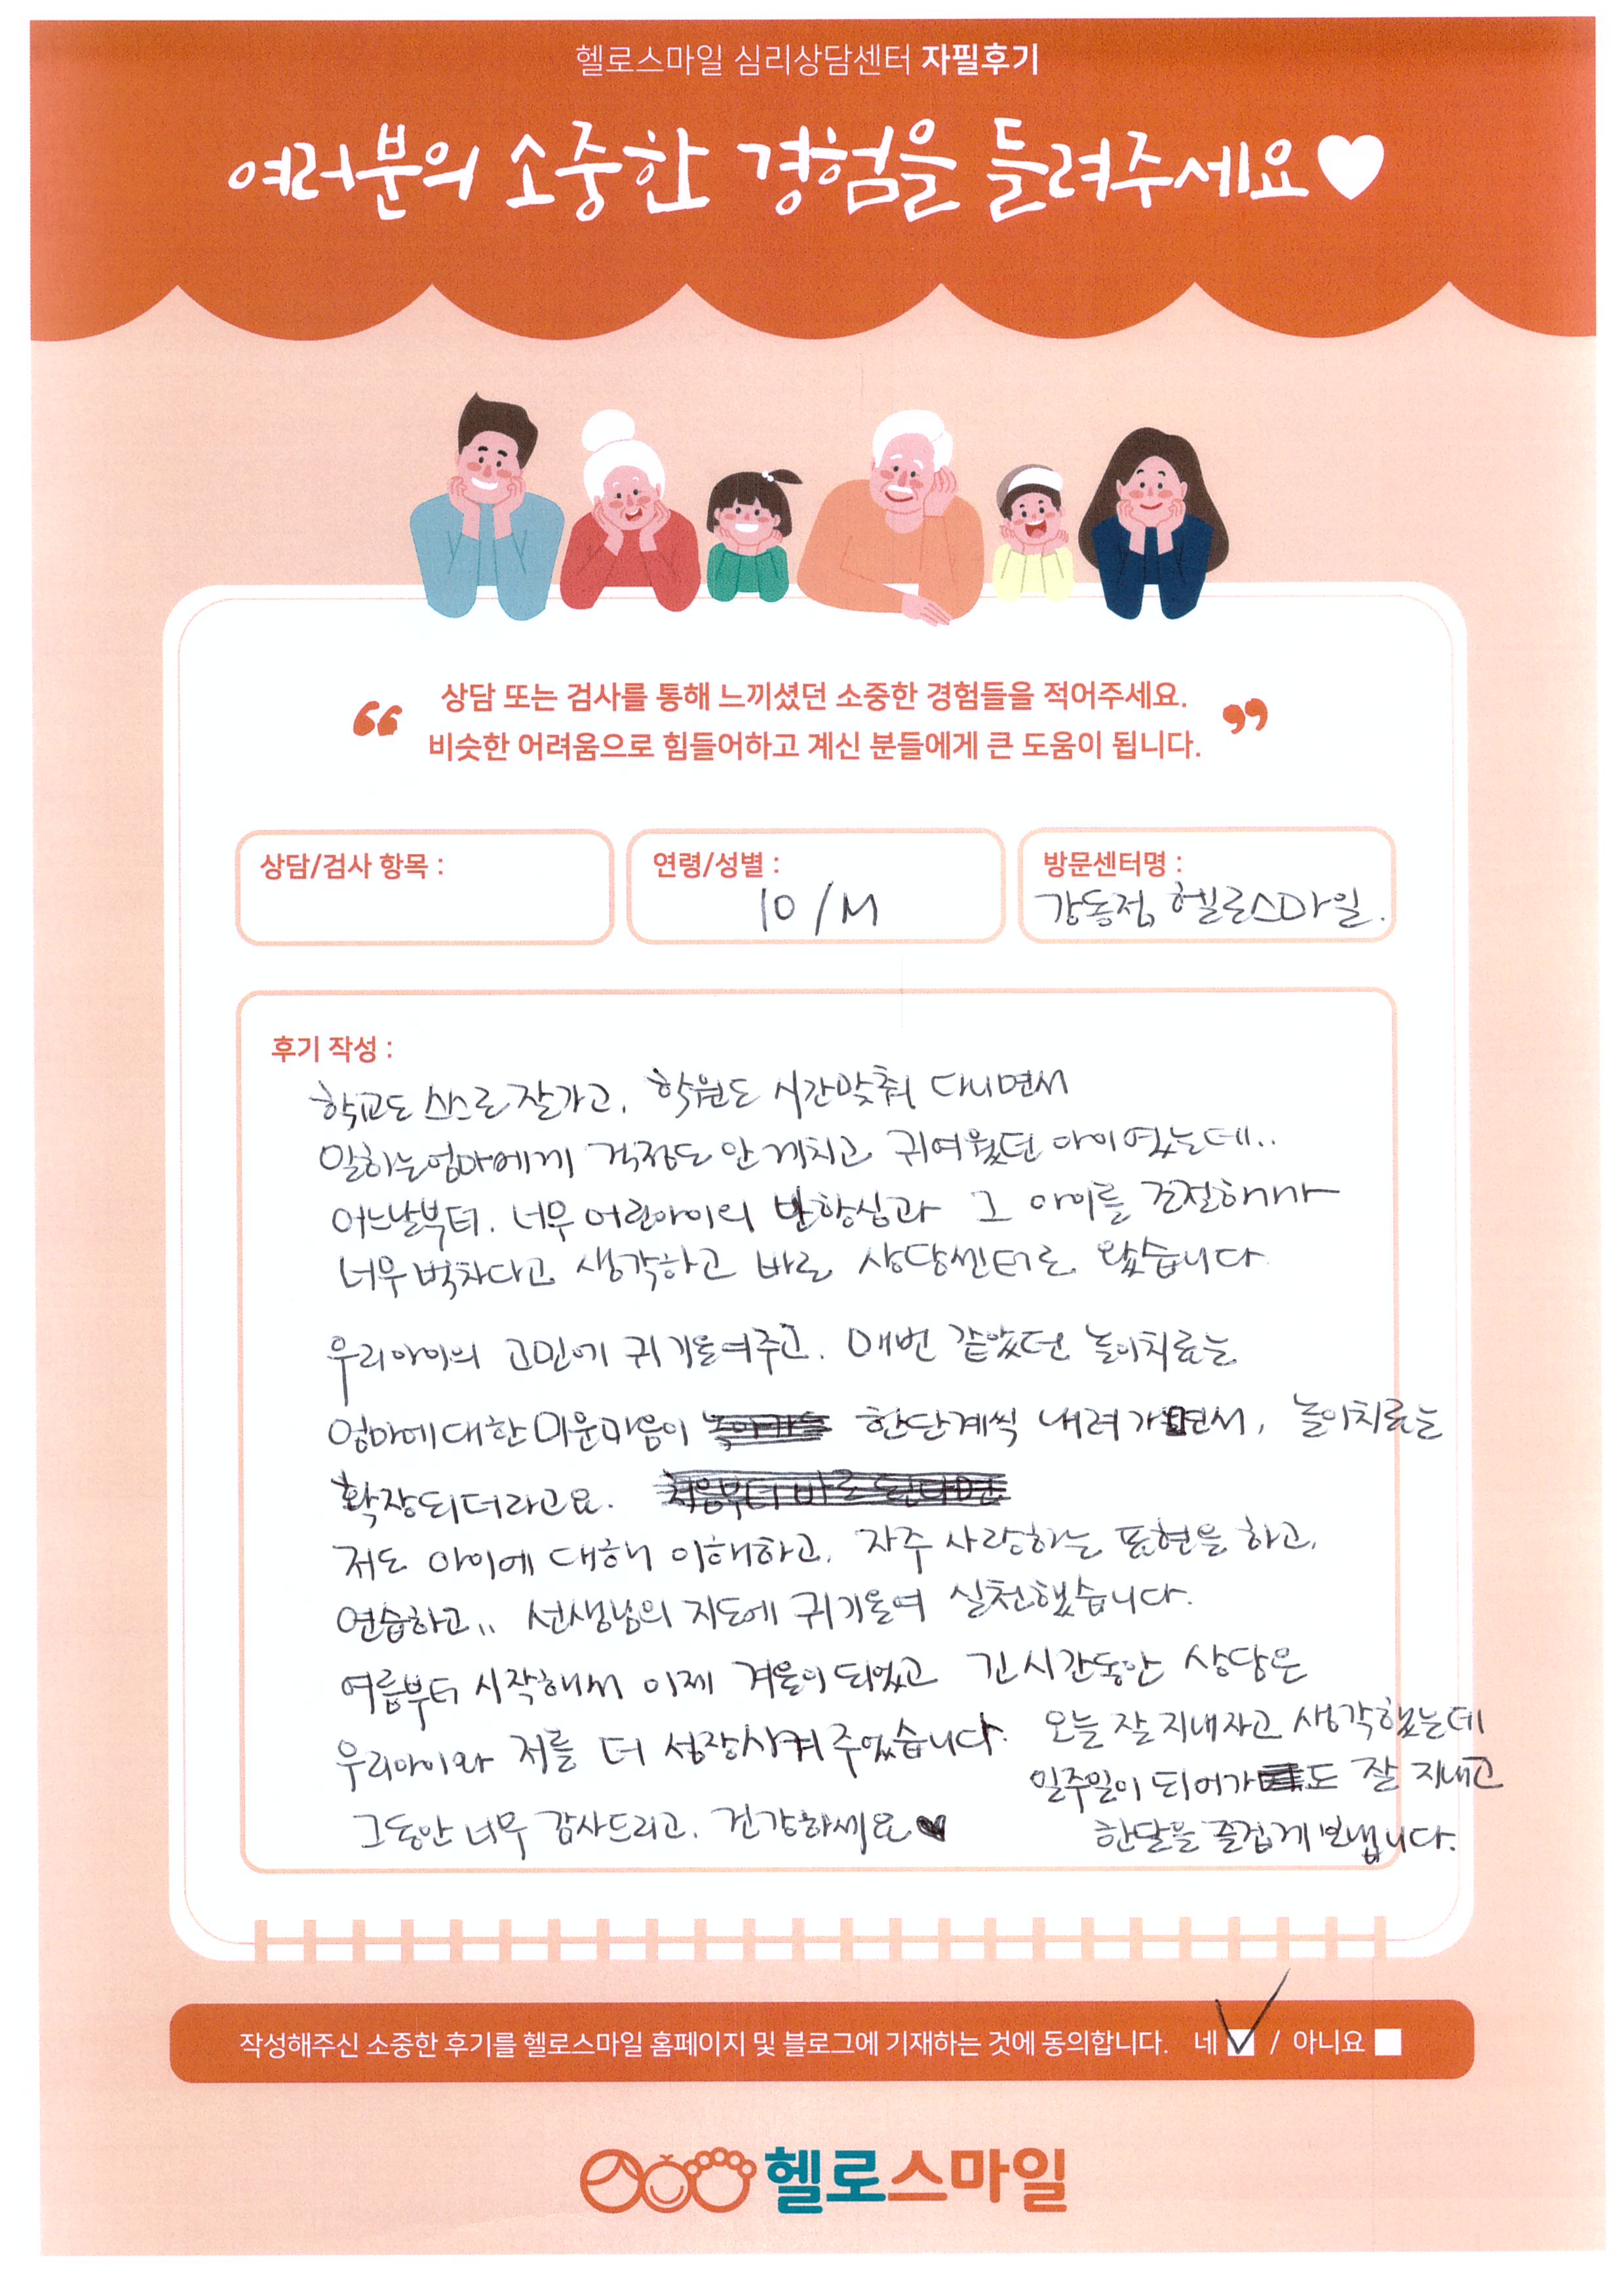 헬로스마일 심리상담센터 자필후기
여러분의 소중한 경험을 들려주세요
상담 또는 검사를 통해 느끼셨던 소중한 경험들을 적어주세요.
비슷한 어려움으로 힘들어하고 계신 분들에게 큰 도움이 됩니다.
상담/검사 항목 :
연령/성별 :
10 / M
방문센터명 :
강동점 헬로스마일.
후기 작성 :
학교도 스스로 잘가고, 학원도 시간맞춰 다니면서
일하는엄마에게 걱정도 안 끼치고 귀여웠던 아이였는데..
어느날부터. 너무 어린아이의 반항심과 그 아이를 조절하기가
너무 벅차다고 생각하고 바로 상담센터로 왔습니다
우리아이의 고민에 귀 기울여주고. 매번 같았던 놀이치료는
엄마에대한 미운마음이 한단계씩 내려가면서, 놀이치료는
확장되더라고요.
저도 아이에 대해 이해하고, 자주 사랑하는 표현을 하고,
연습하고,, 선생님의 지도에 귀기울여 실천했습니다.
여름부터 시작해서 이제 겨울이 되었고 긴 시간동안 상담은
우리아이와 저를 더 성장시켜 주었습니다.
그동안 너무 감사드리고, 건강하세요♥
오늘 잘 지내자고 생각했는데
일주일이 되어가도 잘 지내고
한달을 즐겁게 보냅니다.
작성해주신 소중한 후기를 헬로스마일 홈페이지 및 블로그에 기재하는 것에 동의합니다. 네 / 아니요
헬로스마일